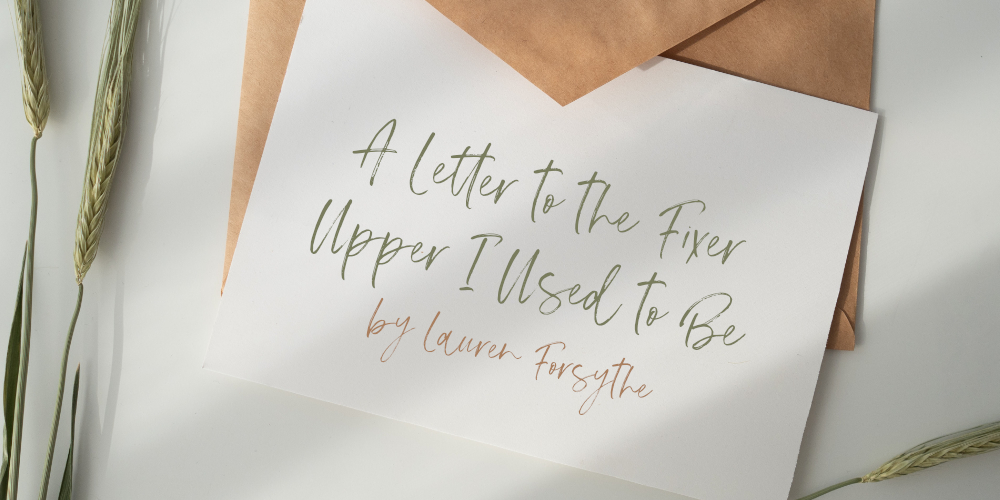 A Letter to the Fixer
Upper I Used to Be
by Lauren Forsythe